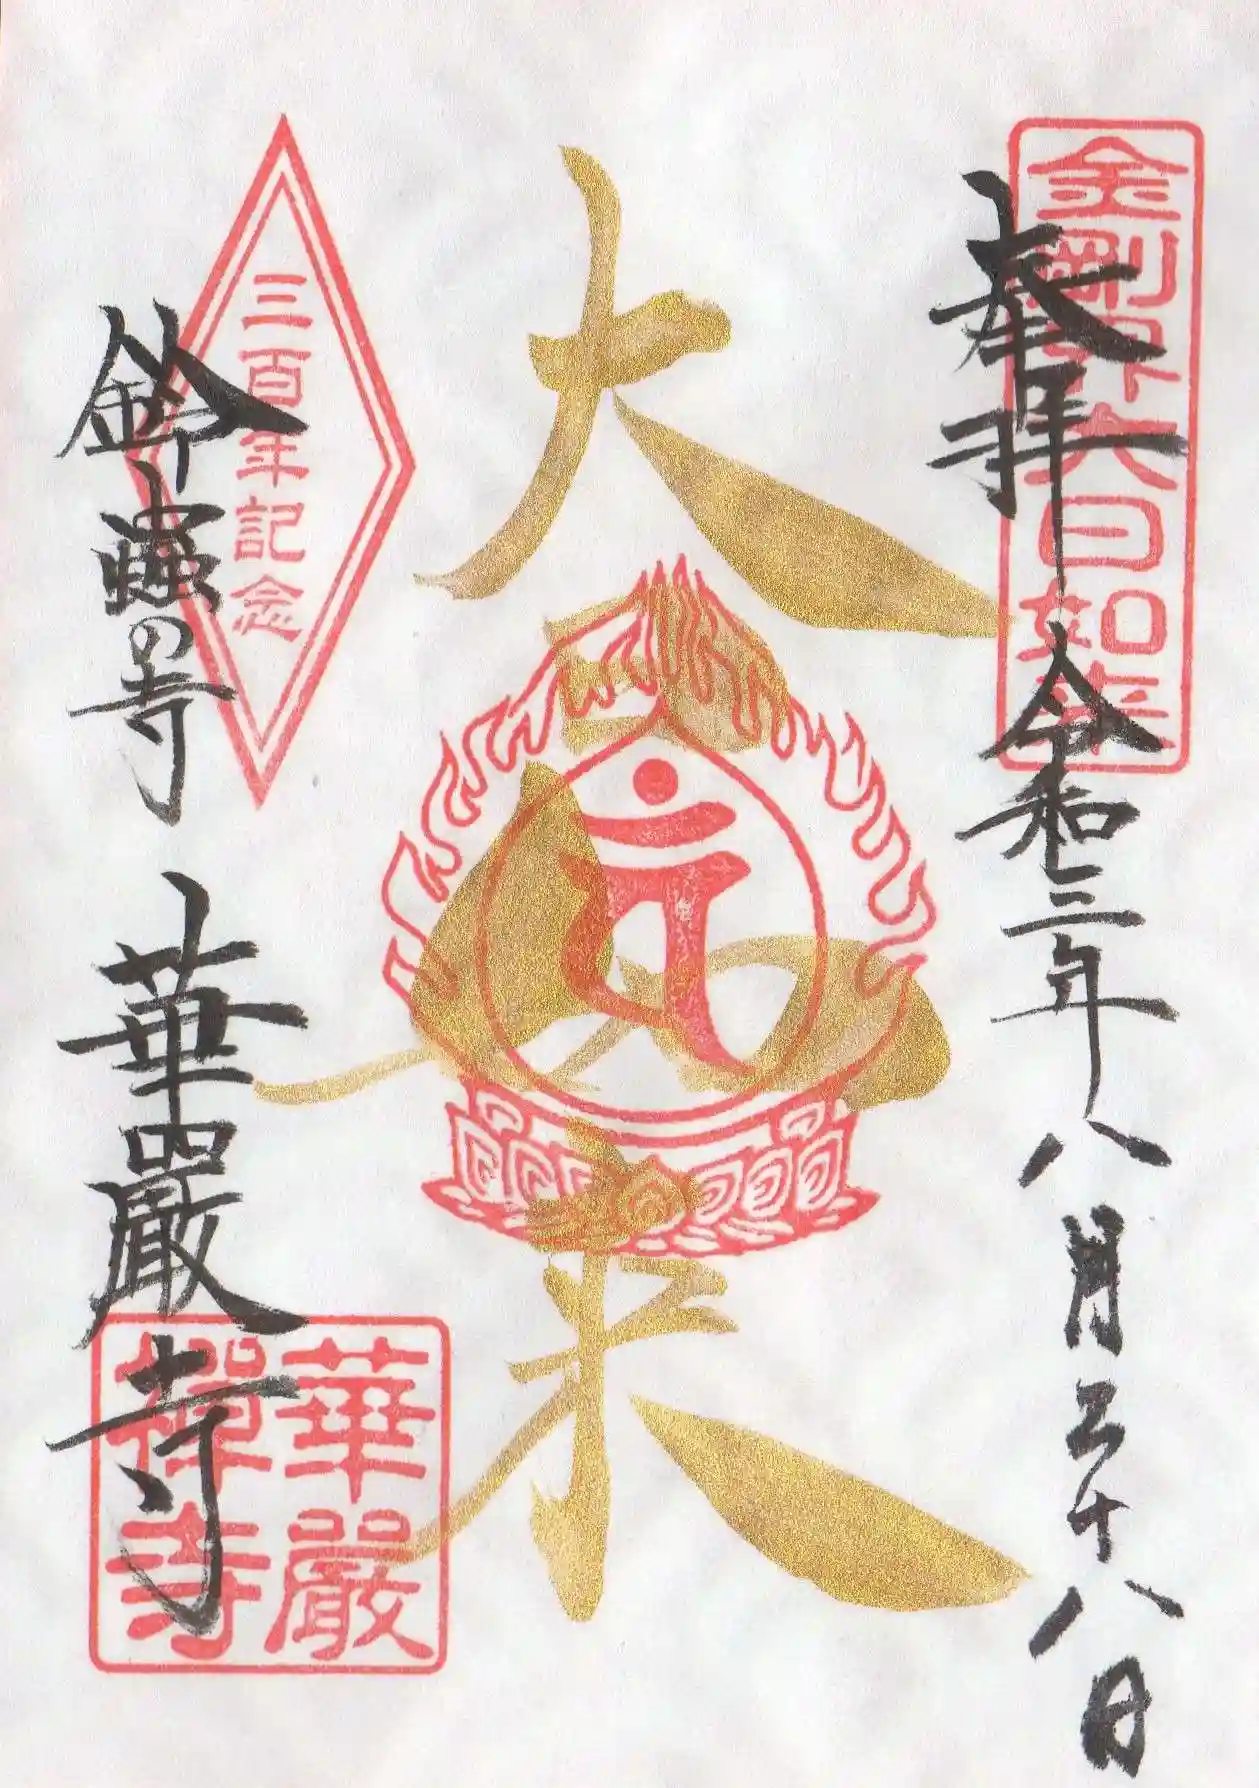 金剛界大日如来
奉拝
令和三年八月二十八日
大日如来
三百年記念
鈴蟲の寺
華嚴寺
華嚴
禪寺